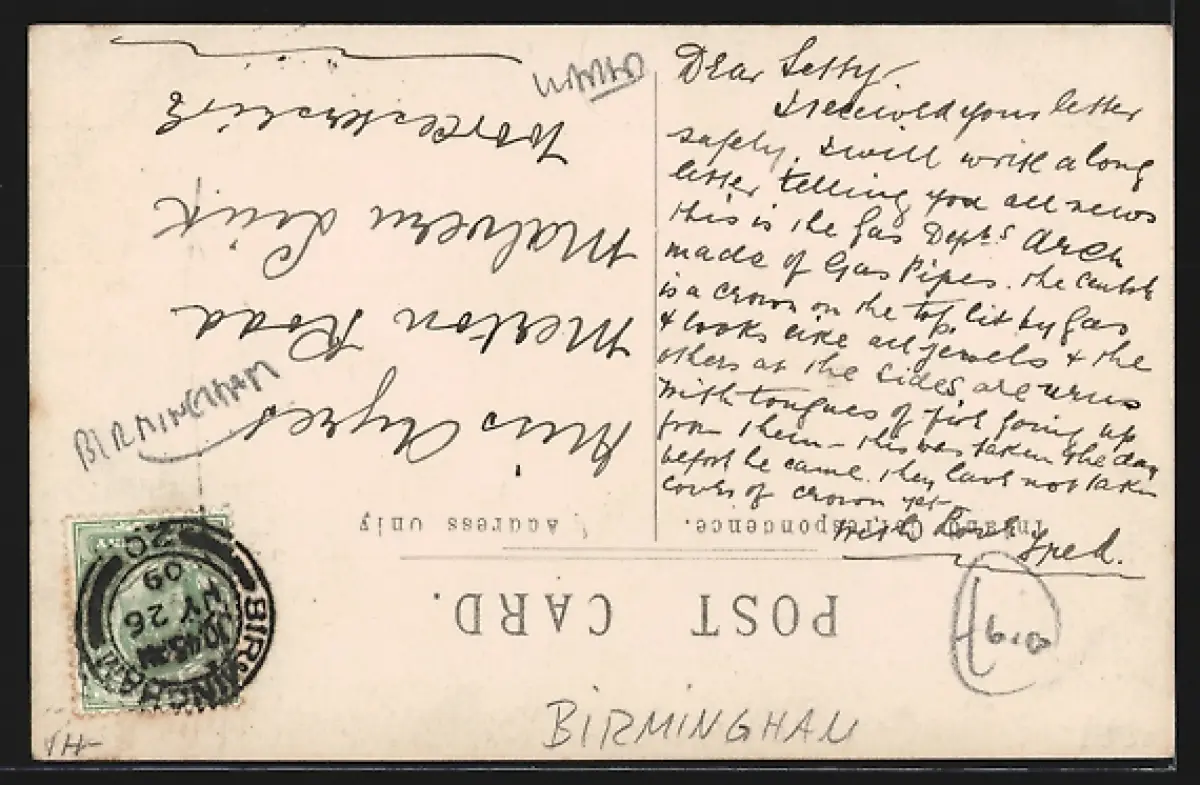 Dear Letty
I received your letter
safely, I will write a long
letter telling you all news
this is the Gas Dept's Arch
made of Gas Pipes. the centre
is a crown on the top, lit by gas
& looks like all jewels & the
others at the sides, are urns
with tongues of fire going up
from them - this was taken the day
before he came. they have not taken
cover of crown yet
with Love
POST CARD.
Inland Correspondence.
Address Only
Miss Ayres
Merton Road
Malvern Link
Worcestershire
BIRMINGHAM
10.45 AM
MY 26
09
BIRMINGHAM
BIRMINGHAM
6.00